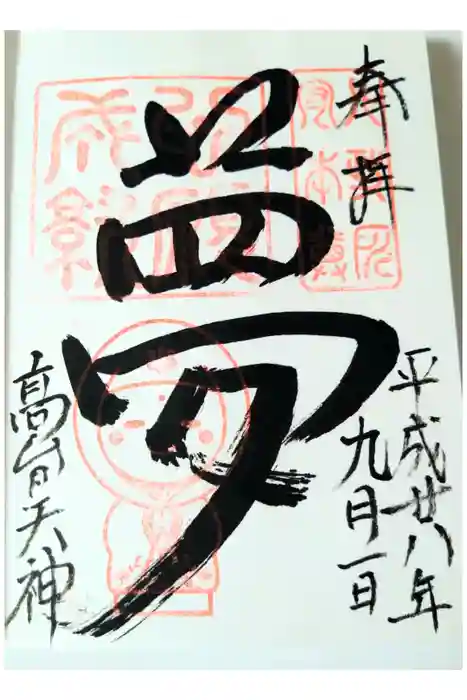 奉拝
平成廿八年
九月一日
夢
高台天神